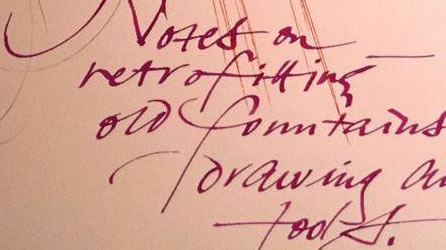 Notes on
retrofitting
old fountains
drawing an
tools.